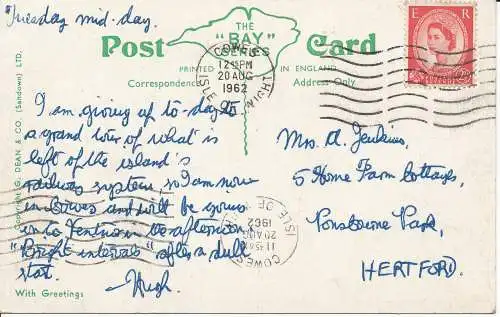 Tuesday mid-day.
THE
"BAY"
SERIES
Post Card
PRINTED IN ENGLAND
Correspondence
Address Only
E R
COWES
12 PM
20 AUG
1962
ISLE WIGHT
I am giving up to-day to
a grand tour of what is
left of the island's
railway system, so I am now
in Cowes and will be going
to Ventnor this afternoon,
"Bright intervals" after a dull
start.
Hugh.
Mrs. A. Jenkins,
5 Home Farm Cottages,
Ponsbourne Park,
HERTFORD.
COWES
11
20 AUG
1962
ISLE OF
Copyright G. DEAN & CO. (Sandown) LTD.
With Greetings